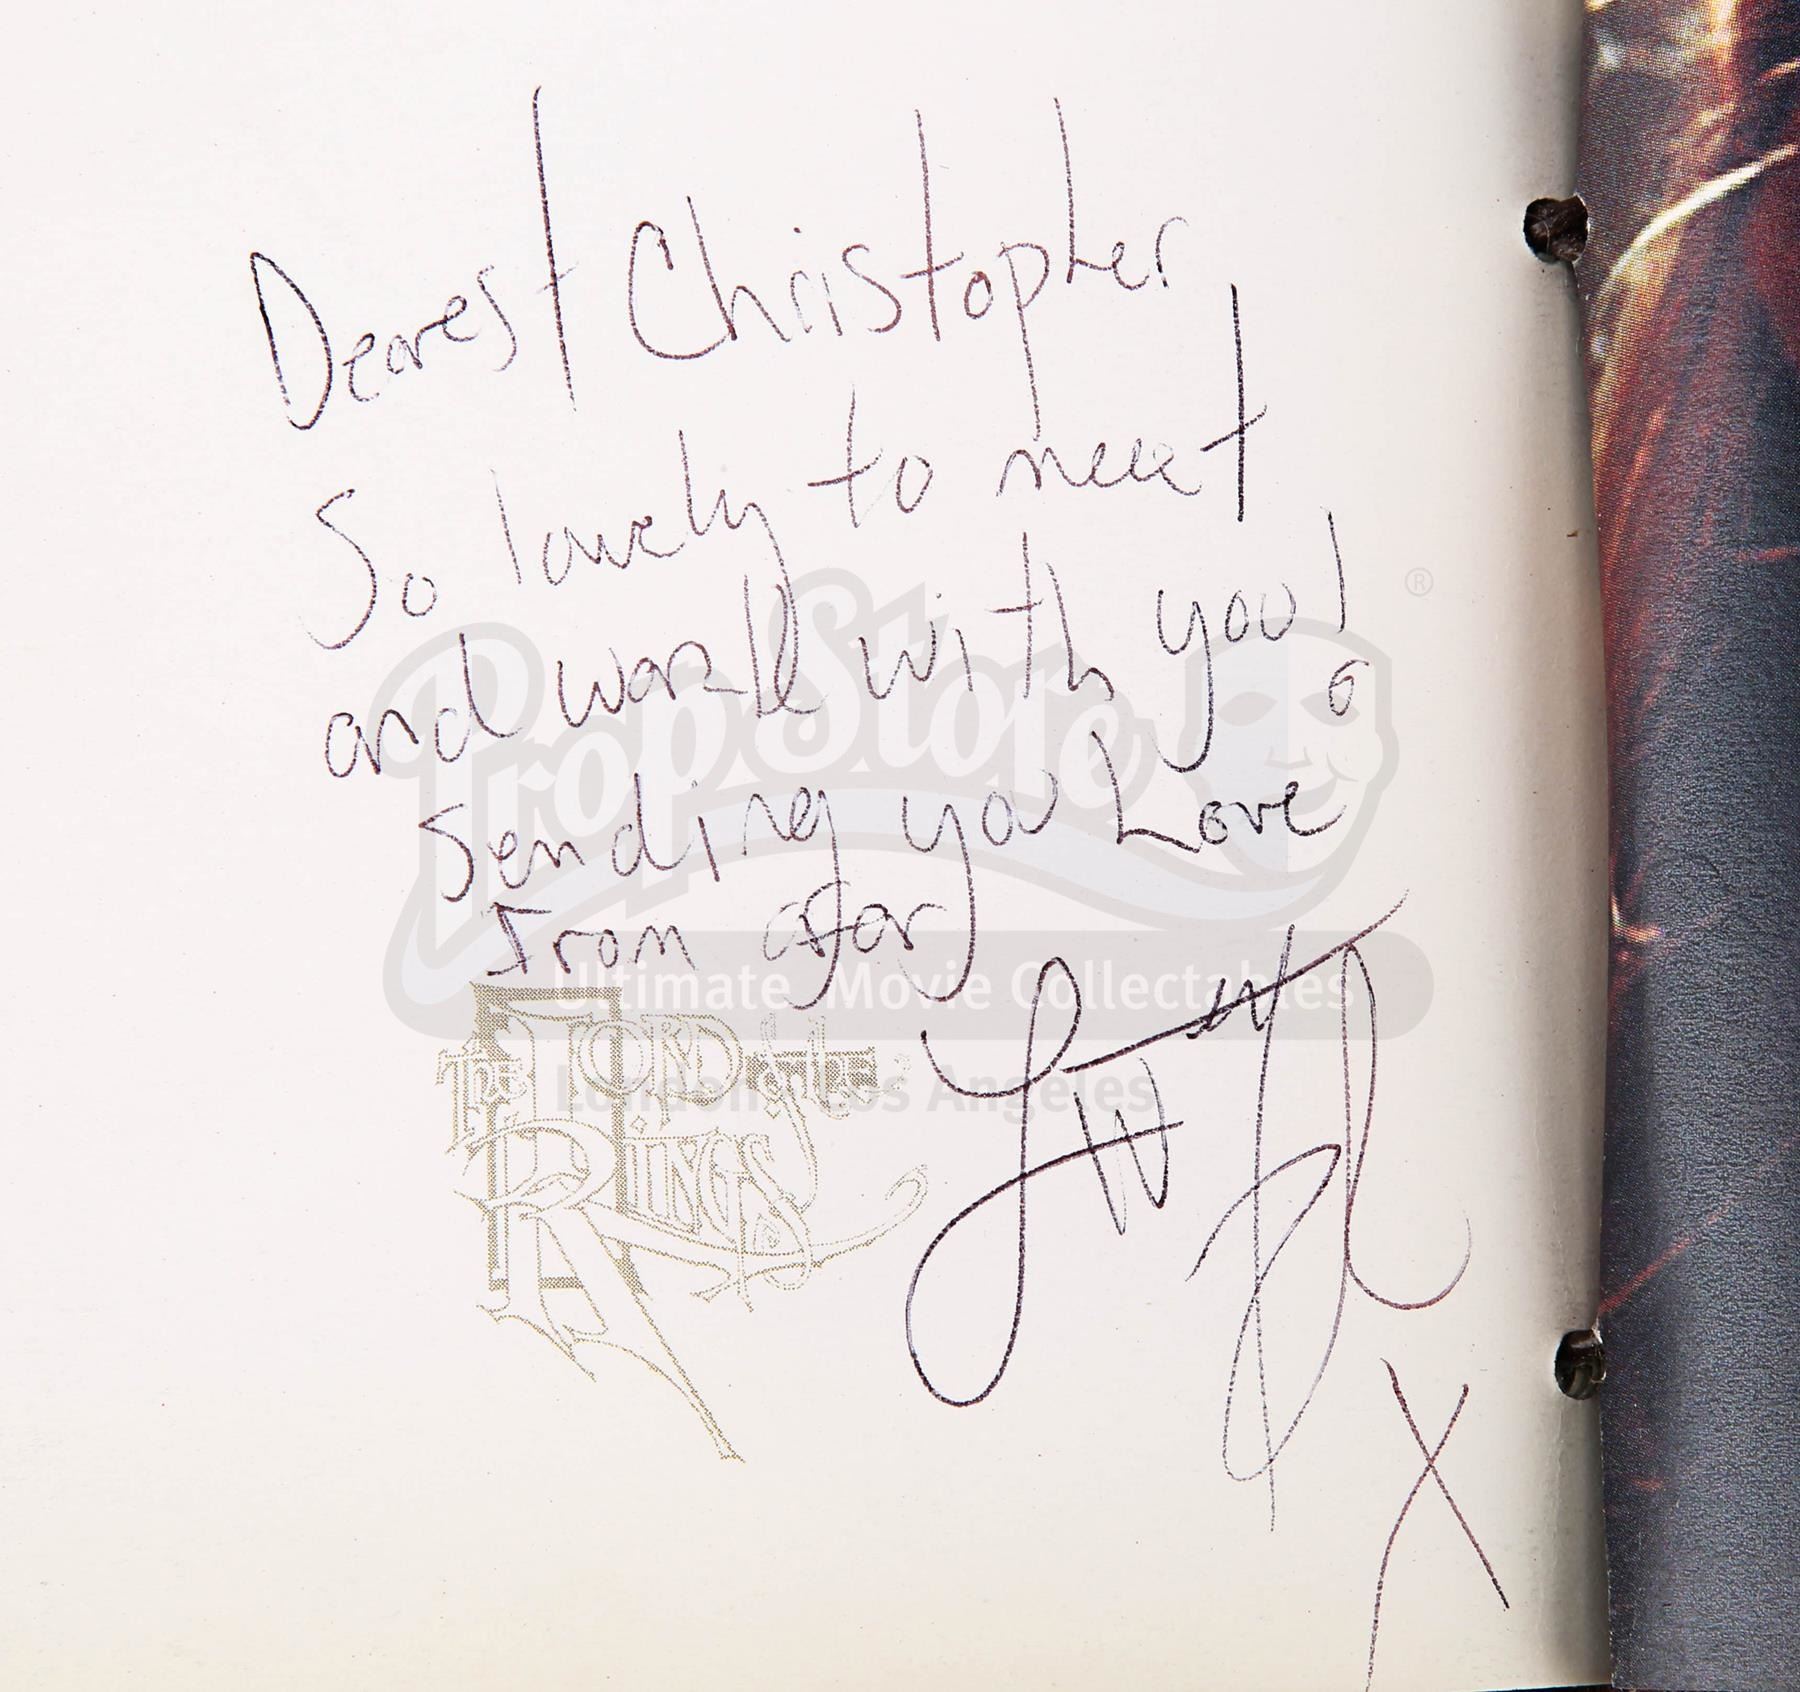 Dearest Christopher,
So lovely to meet
and work with you!
Sending you Love
From afar
PropStore
®
Ultimate Movie Collectables
London - Los Angeles
The Lord of the
Rings
X